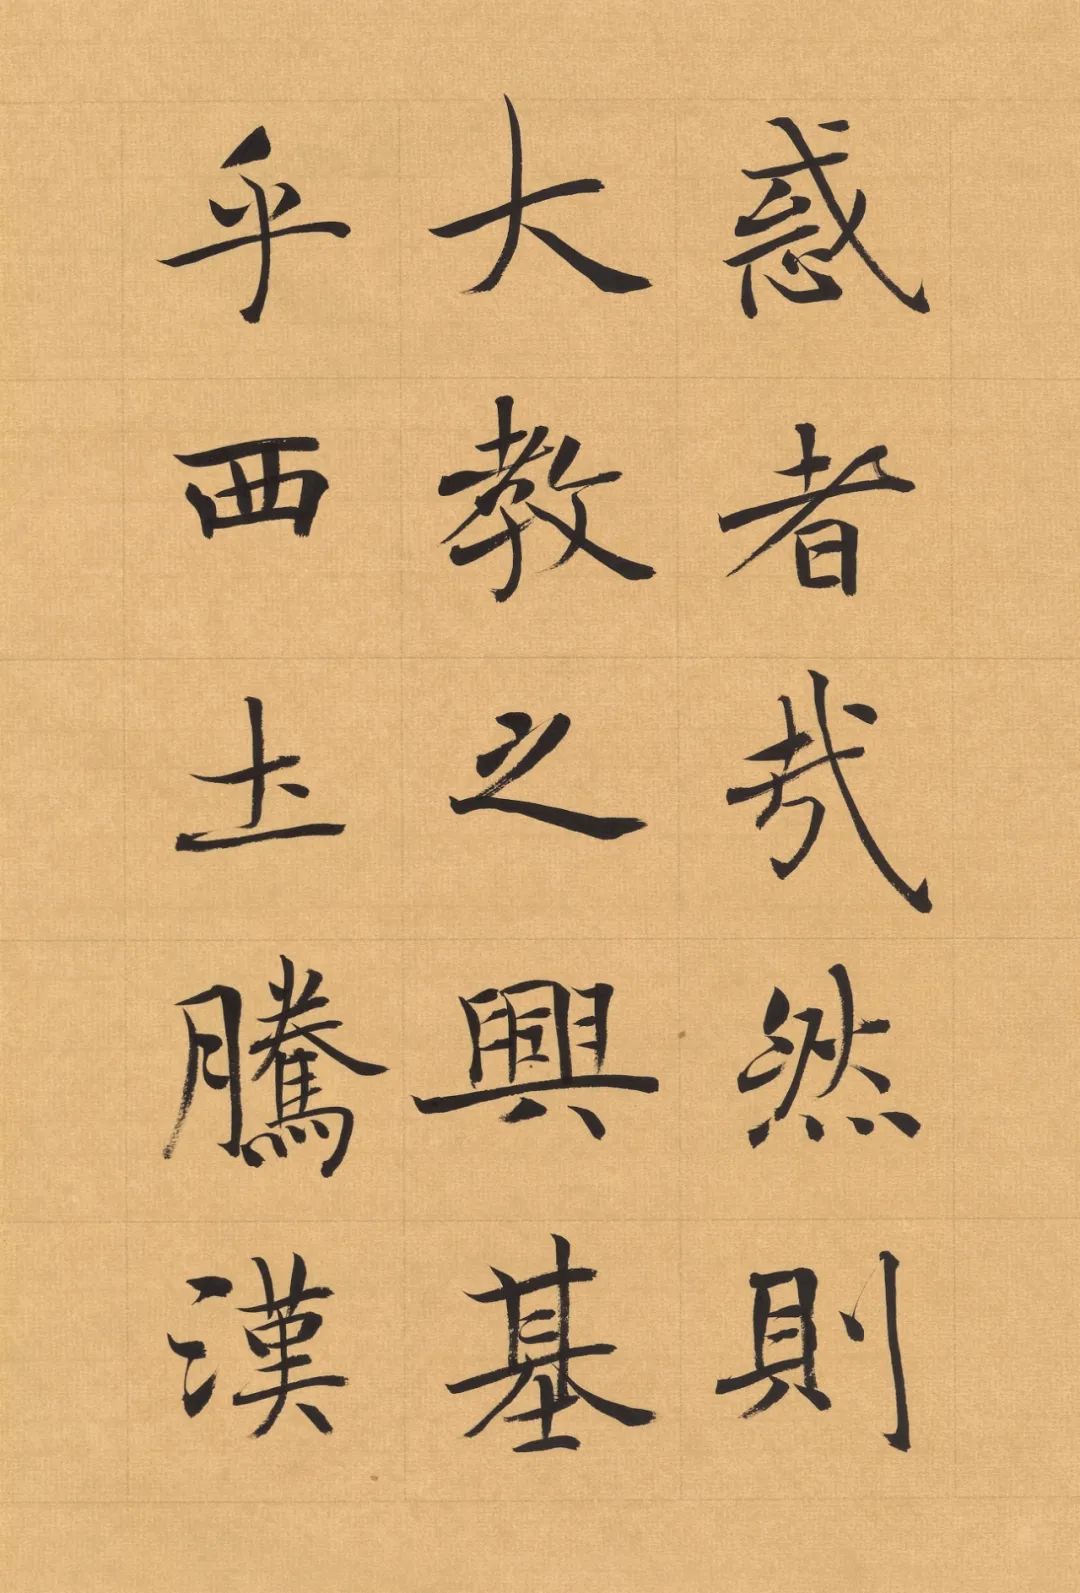 惑者哉然則
大教之興基
乎西土騰漢